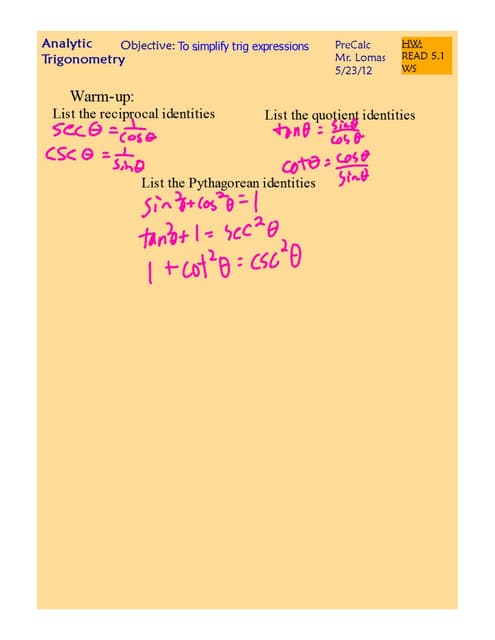 Analytic Trigonometry
Objective: To simplify trig expressions
PreCalc
Mr. Lomas
5/23/12
HW:
READ 5.1
WS
Warm-up:
List the reciprocal identities
sec θ = 1/cos θ
csc θ = 1/sin θ
List the quotient identities
tan θ = sin θ/cos θ
cot θ = cos θ/sin θ
List the Pythagorean identities
sin²θ + cos²θ = 1
tan²θ + 1 = sec²θ
1 + cot²θ = csc²θ